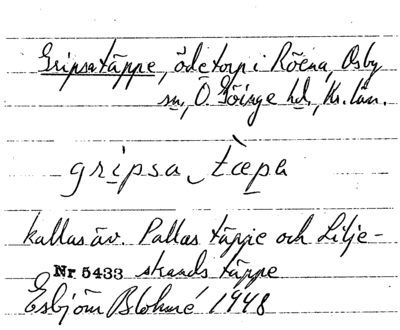 Gripsatäppe, ödetorp i Röena, Osby
sn, Ö. Göinge hd., Kr. län.
gripsa tæpa
kallas äv. Pallas täppe och Lilje-
Nr 5433 strands täppe
Esbjörn Blohmé 1948